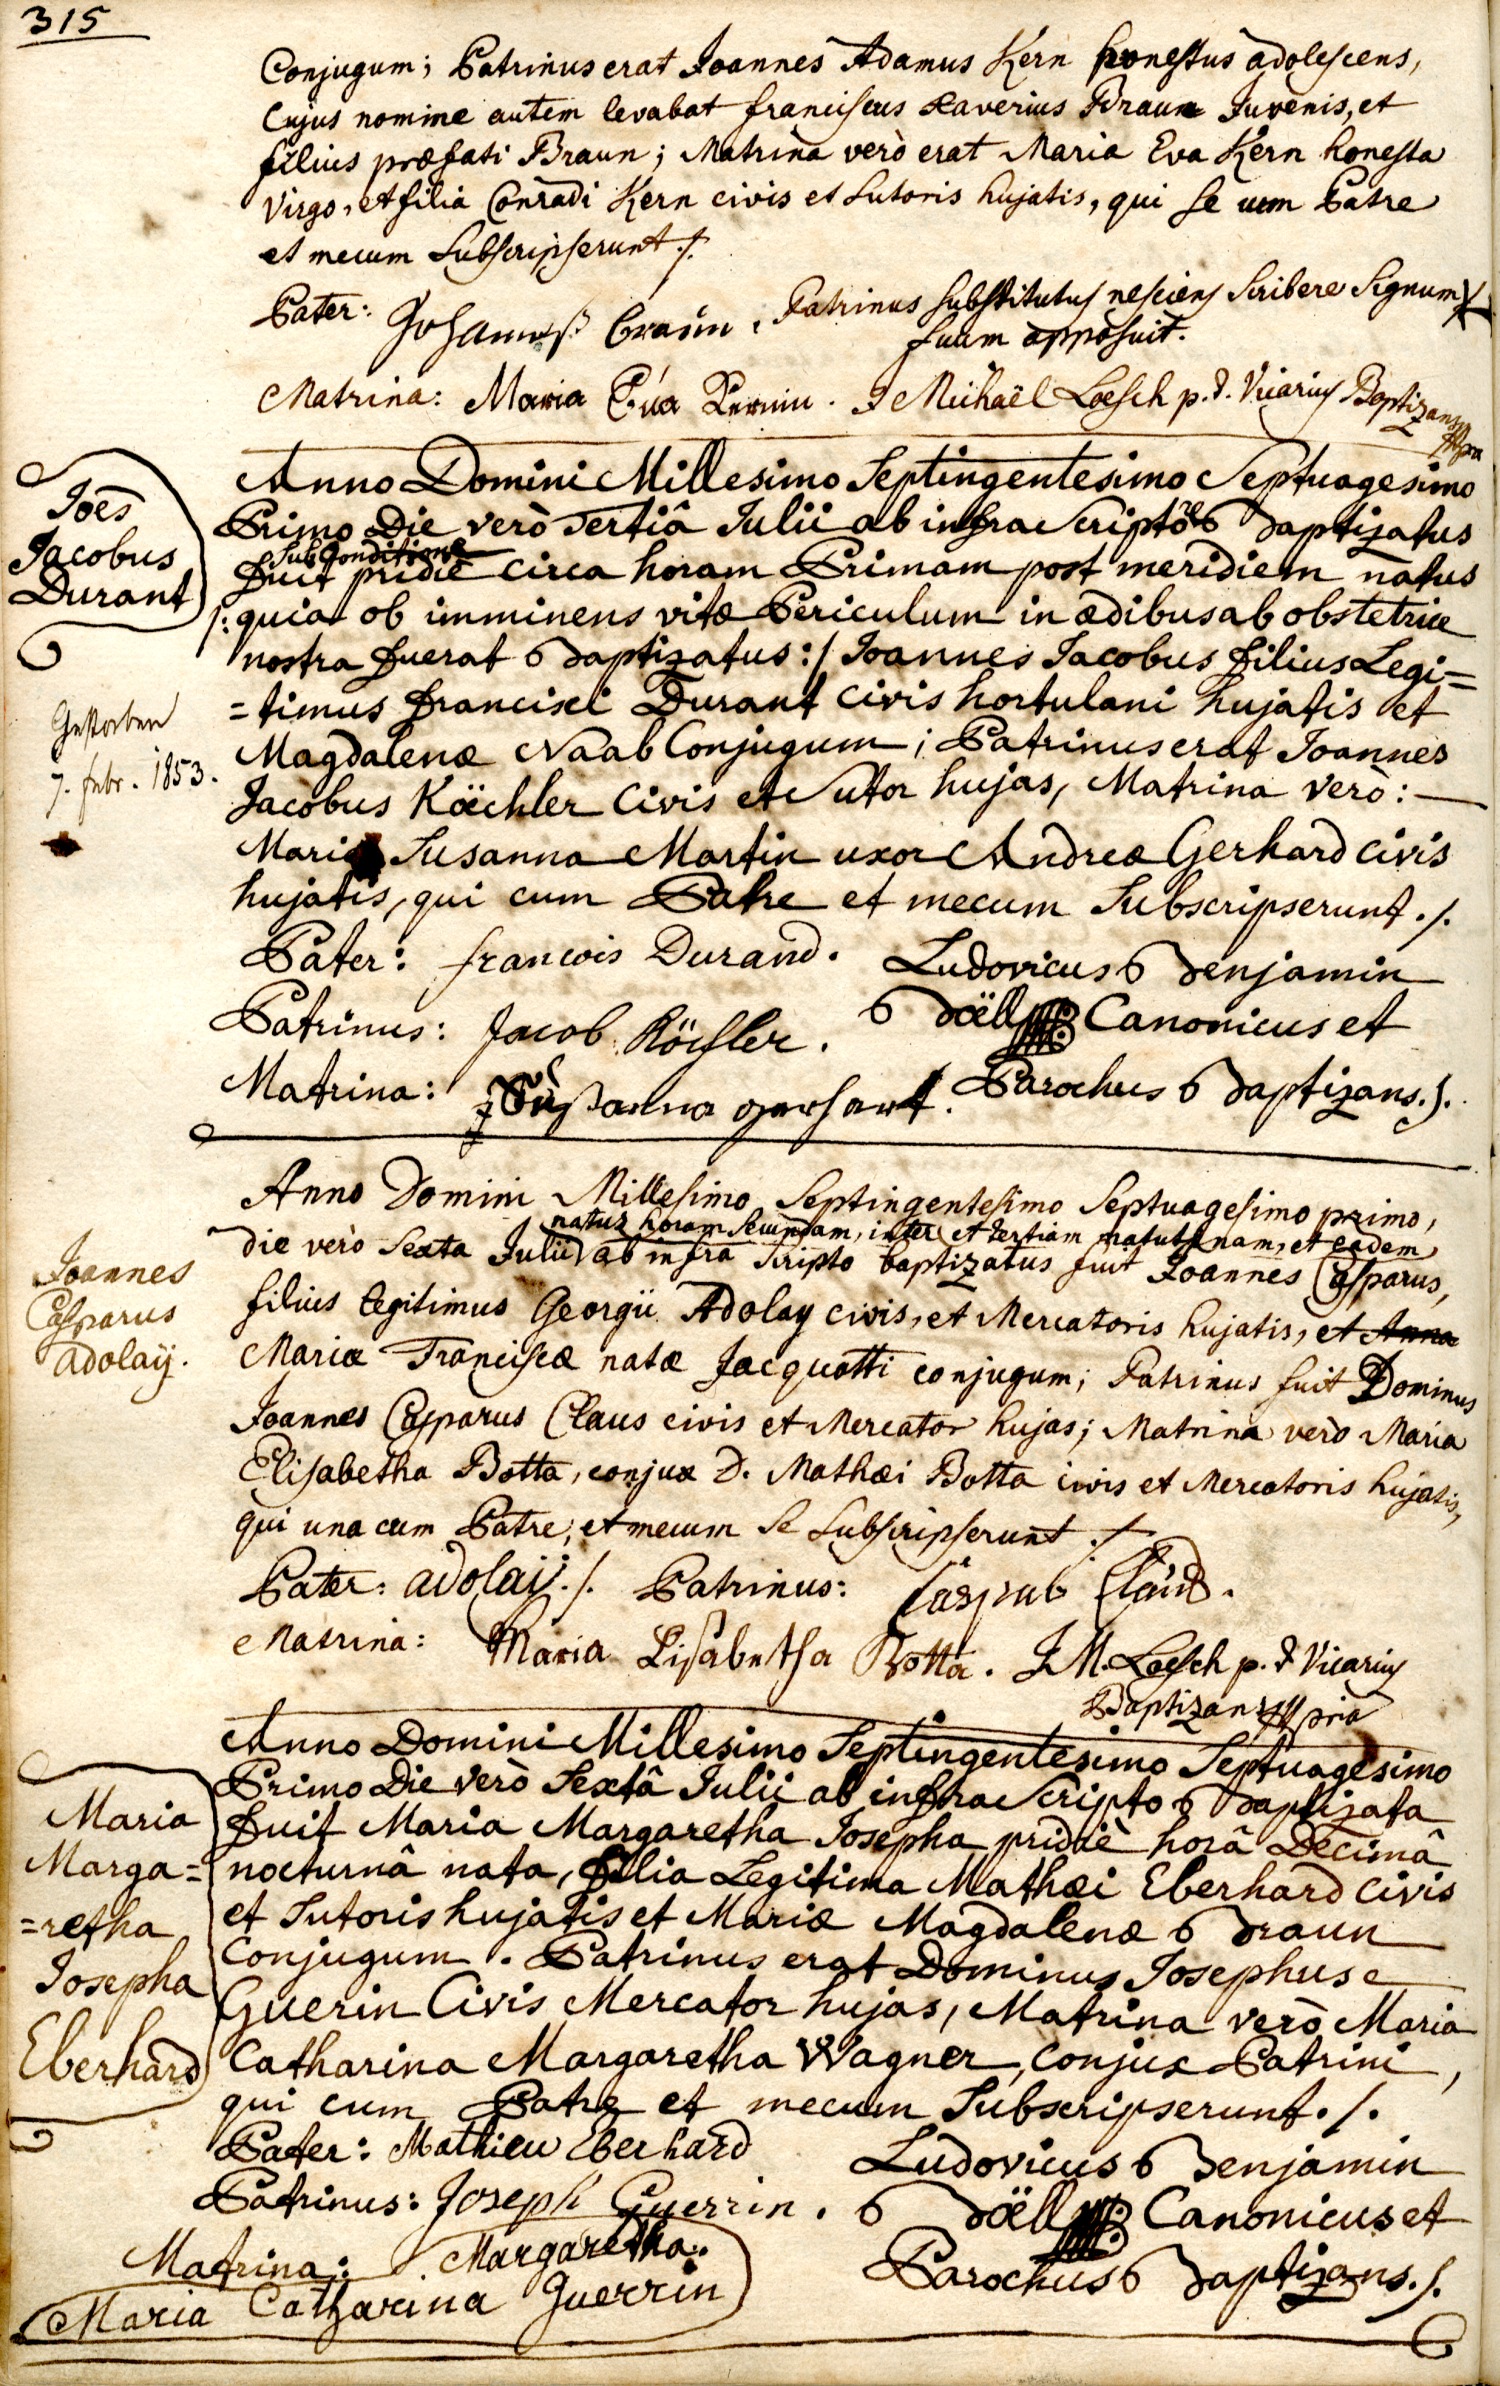 315
Conjugum; Patrinus erat Joannes Adamus Kern honestus adolescens,
Cujus nomine autem levabat franciscus Xaverius Braun Juvenis, et
filius præfati Braun; Matrina verò erat Maria Eva Kern honesta
Virgo, et filia Conradi Kern civis et Sutoris hujatis, qui se cum Patre
et mecum Subscripserunt ./.
Pater: Johannes braun. Patrinus substitutus nesciens Scribere Signum X
suum apposuit.
Matrina: Maria Eva Kernin. J Michaël Loesch p.t. Vicarius Baptizans mpria
Joēs
Jacobus
Durant
Gestorben
7. febr. 1853.
Anno Domini Millesimo Septingentesimo Septuagesimo
Primo Die verò Tertiâ Julii ab infra Scripto Baptizatus
Sub Conditione
fuit pridiè circa horam Primam post meridiem natus
/: quia ob imminens vitæ Periculum in ædibus ab obstetrice
nostra fuerat Baptizatus :/ Joannes Jacobus filius Legi=
=timus francisci Durant Civis hortulani hujatis et
Magdalenæ Naab Conjugum; Patrinus erat Joannes
Jacobus Köchler Civis et Sutor hujas, Matrina verò: —
Maria Susanna Martin uxor Andreæ Gerhard civis
hujatis, qui cum Patre et mecum Subscripserunt ./.
Pater: francois Durand. Ludovicus Benjamin
Patrinus: Jacob Köchler. Döll Canonicus et
Matrina: Sußanna gerhart. Parochus Baptizans ./.
Joannes
Casparus
Adolaÿ.
Anno Domini Millesimo Septingentesimo Septuagesimo primo,
natus horam Secundam, inter et tertiam matutinam, et eadem
die verò Sexta Julii ab infra Scripto baptizatus fuit Joannes Casparus,
filius legitimus Georgii Adolay civis, et Mercatoris hujatis, et Anna
Mariæ Franciscæ natæ Jacquotti conjugum; Patrinus fuit Dominus
Joannes Casparus Claus civis et Mercator hujas; Matrina verò Maria
Elisabetha Botta, conjux D. Mathæi Botta civis et Mercatoris hujatis,
qui una cum Patre, et mecum se Subscripserunt ./.
Pater: adolaÿ ./. Patrinus: Caspar Claus.
Matrina: Maria Lisabetha Botta. J M. Loesch p.t. Vicarius
Baptizans mpria
Maria
Marga=
=retha
Josepha
Eberhard
Anno Domini Millesimo Septingentesimo Septuagesimo
Primo Die verò Sextâ Julii ab infra Scripto Baptizata
fuit Maria Margaretha Josepha pridiè horâ Decimâ
nocturnâ nata, filia Legitima Mathæi Eberhard Civis
et Sutoris hujatis et Mariæ Magdalenæ Braun
Conjugum. Patrinus erat Dominus Josephus
Guerin Civis Mercator hujas, Matrina verò Maria
Catharina Margaretha Wagner, conjux Patrini,
qui cum Patre et mecum Subscripserunt ./.
Pater: Mathieu Eberhard Ludovicus Benjamin
Patrinus: Joseph Guerrin. Döll Canonicus et
Matrina: Margaretha Parochus Baptizans ./.
Maria Catharina Guerrin